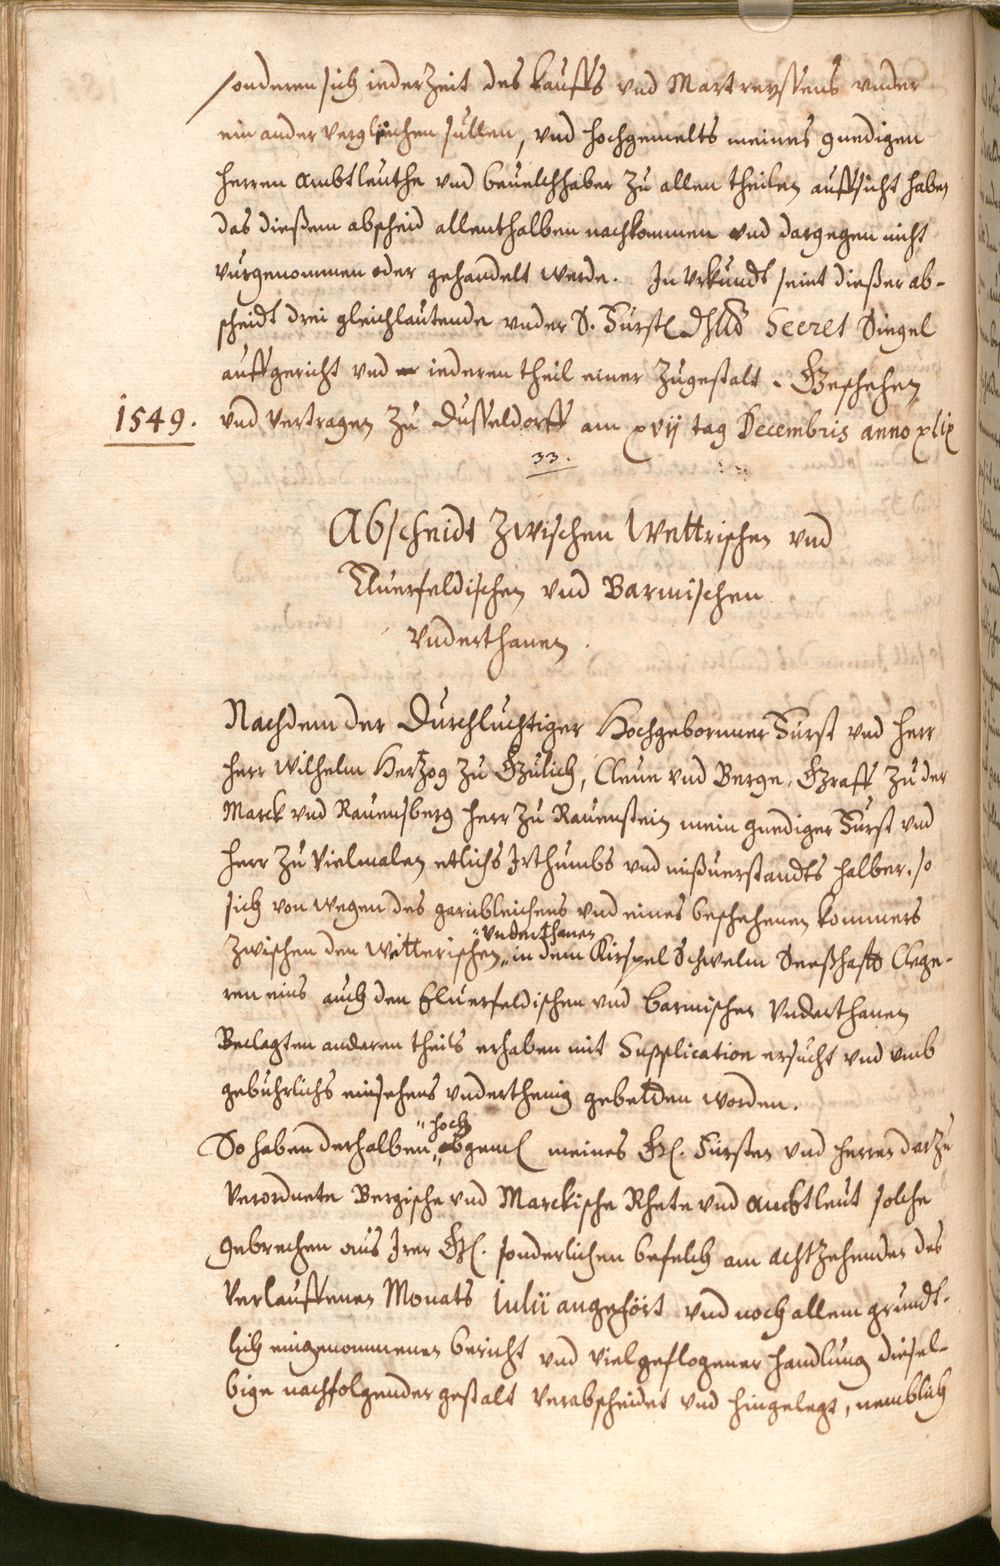 sonderen sich iederZeit des kauffs vnd Martreyssens vnder
ein ander vergliechen sullen, vnd hochgemelts meines gnedigen
Herren Ambtleuthe vnd beuelchhaber Zu allen theilen auffsicht haben
das dießem abscheid allenthalben nachkommen vnd dargegen nicht
vurgenommen oder gehandelt werde. In Vrkundt seint dießer ab-
scheidt drei gleichlautende vnder S. Fürstl Secret Siegel
auffgericht vnd iederen theil einer Zugestalt. Geschehen
1549. vnd vertragen Zu Dusseldorff am xvij tag Decembris anno xlix
33.
Abscheidt Zwischen Wettrischen vnd
Eluerfeldischen vnd Barmischen
Vnderthanen.
Nachdem der Durchluchtiger Hochgebornner Furst vnd Herr
Herr Wilhelm Hertzog Zu Gülich, Cleue vnd Berge, Graff Zu der
Marck vnd Rauensberg Herr Zu Rauenstein mein gnediger Furst vnd
Herr Zu Vielmalen etlichs Irthumbs vnd mißuerstandts halber, so
sich von wegen des garnbleichens vnd eines beschehenen kommers
Vnderthanen
Zwischen den Witterischen in dem Kirspel Schwelm Seeßhafft Clege-
ren eins auch den Eluerfeldischen vnd barmischen Vnderthanen
Beclagten anderen theils erhaben mit Supplication ersucht vnd vmb
gebuhrlichs einsehens vnderthenig gebetden worden.
hoch
So haben derhalben gemel meines G. Fürsten vnd Herren darZu
Verordnete Bergische vnd Marckische Rhete vnd Ambtleut solche
gebrechen aus Irer G. sonderlichen befelch am achtZehenden des
Verlauffenen Monats Iulii angehört vnd noch allem grundt-
lich eingenommenen bericht vnd vielgeflogener Handlung diesel-
bige nachfolgender gestalt Verabscheidet vnd hingelegt, nemblich